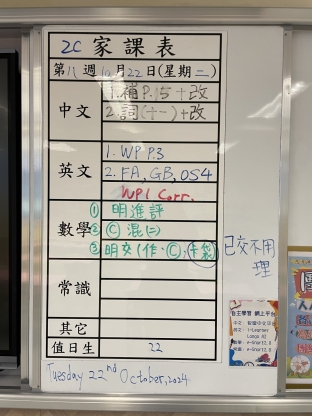 2C 家課表
第八週10月22日(星期二)
中文
1.補P.15+改
2.詞(十一)+改
英文
1. WP P.3
2. FA, GB, OS4
WP1 Corr.
數學
① 明進評
② Ⓒ 混(二)
③ 明交(作、Ⓒ,手裂)
已交不用理
常識
其它
值日生
22
Tuesday 22nd October, 2024
自主學習 網上平台